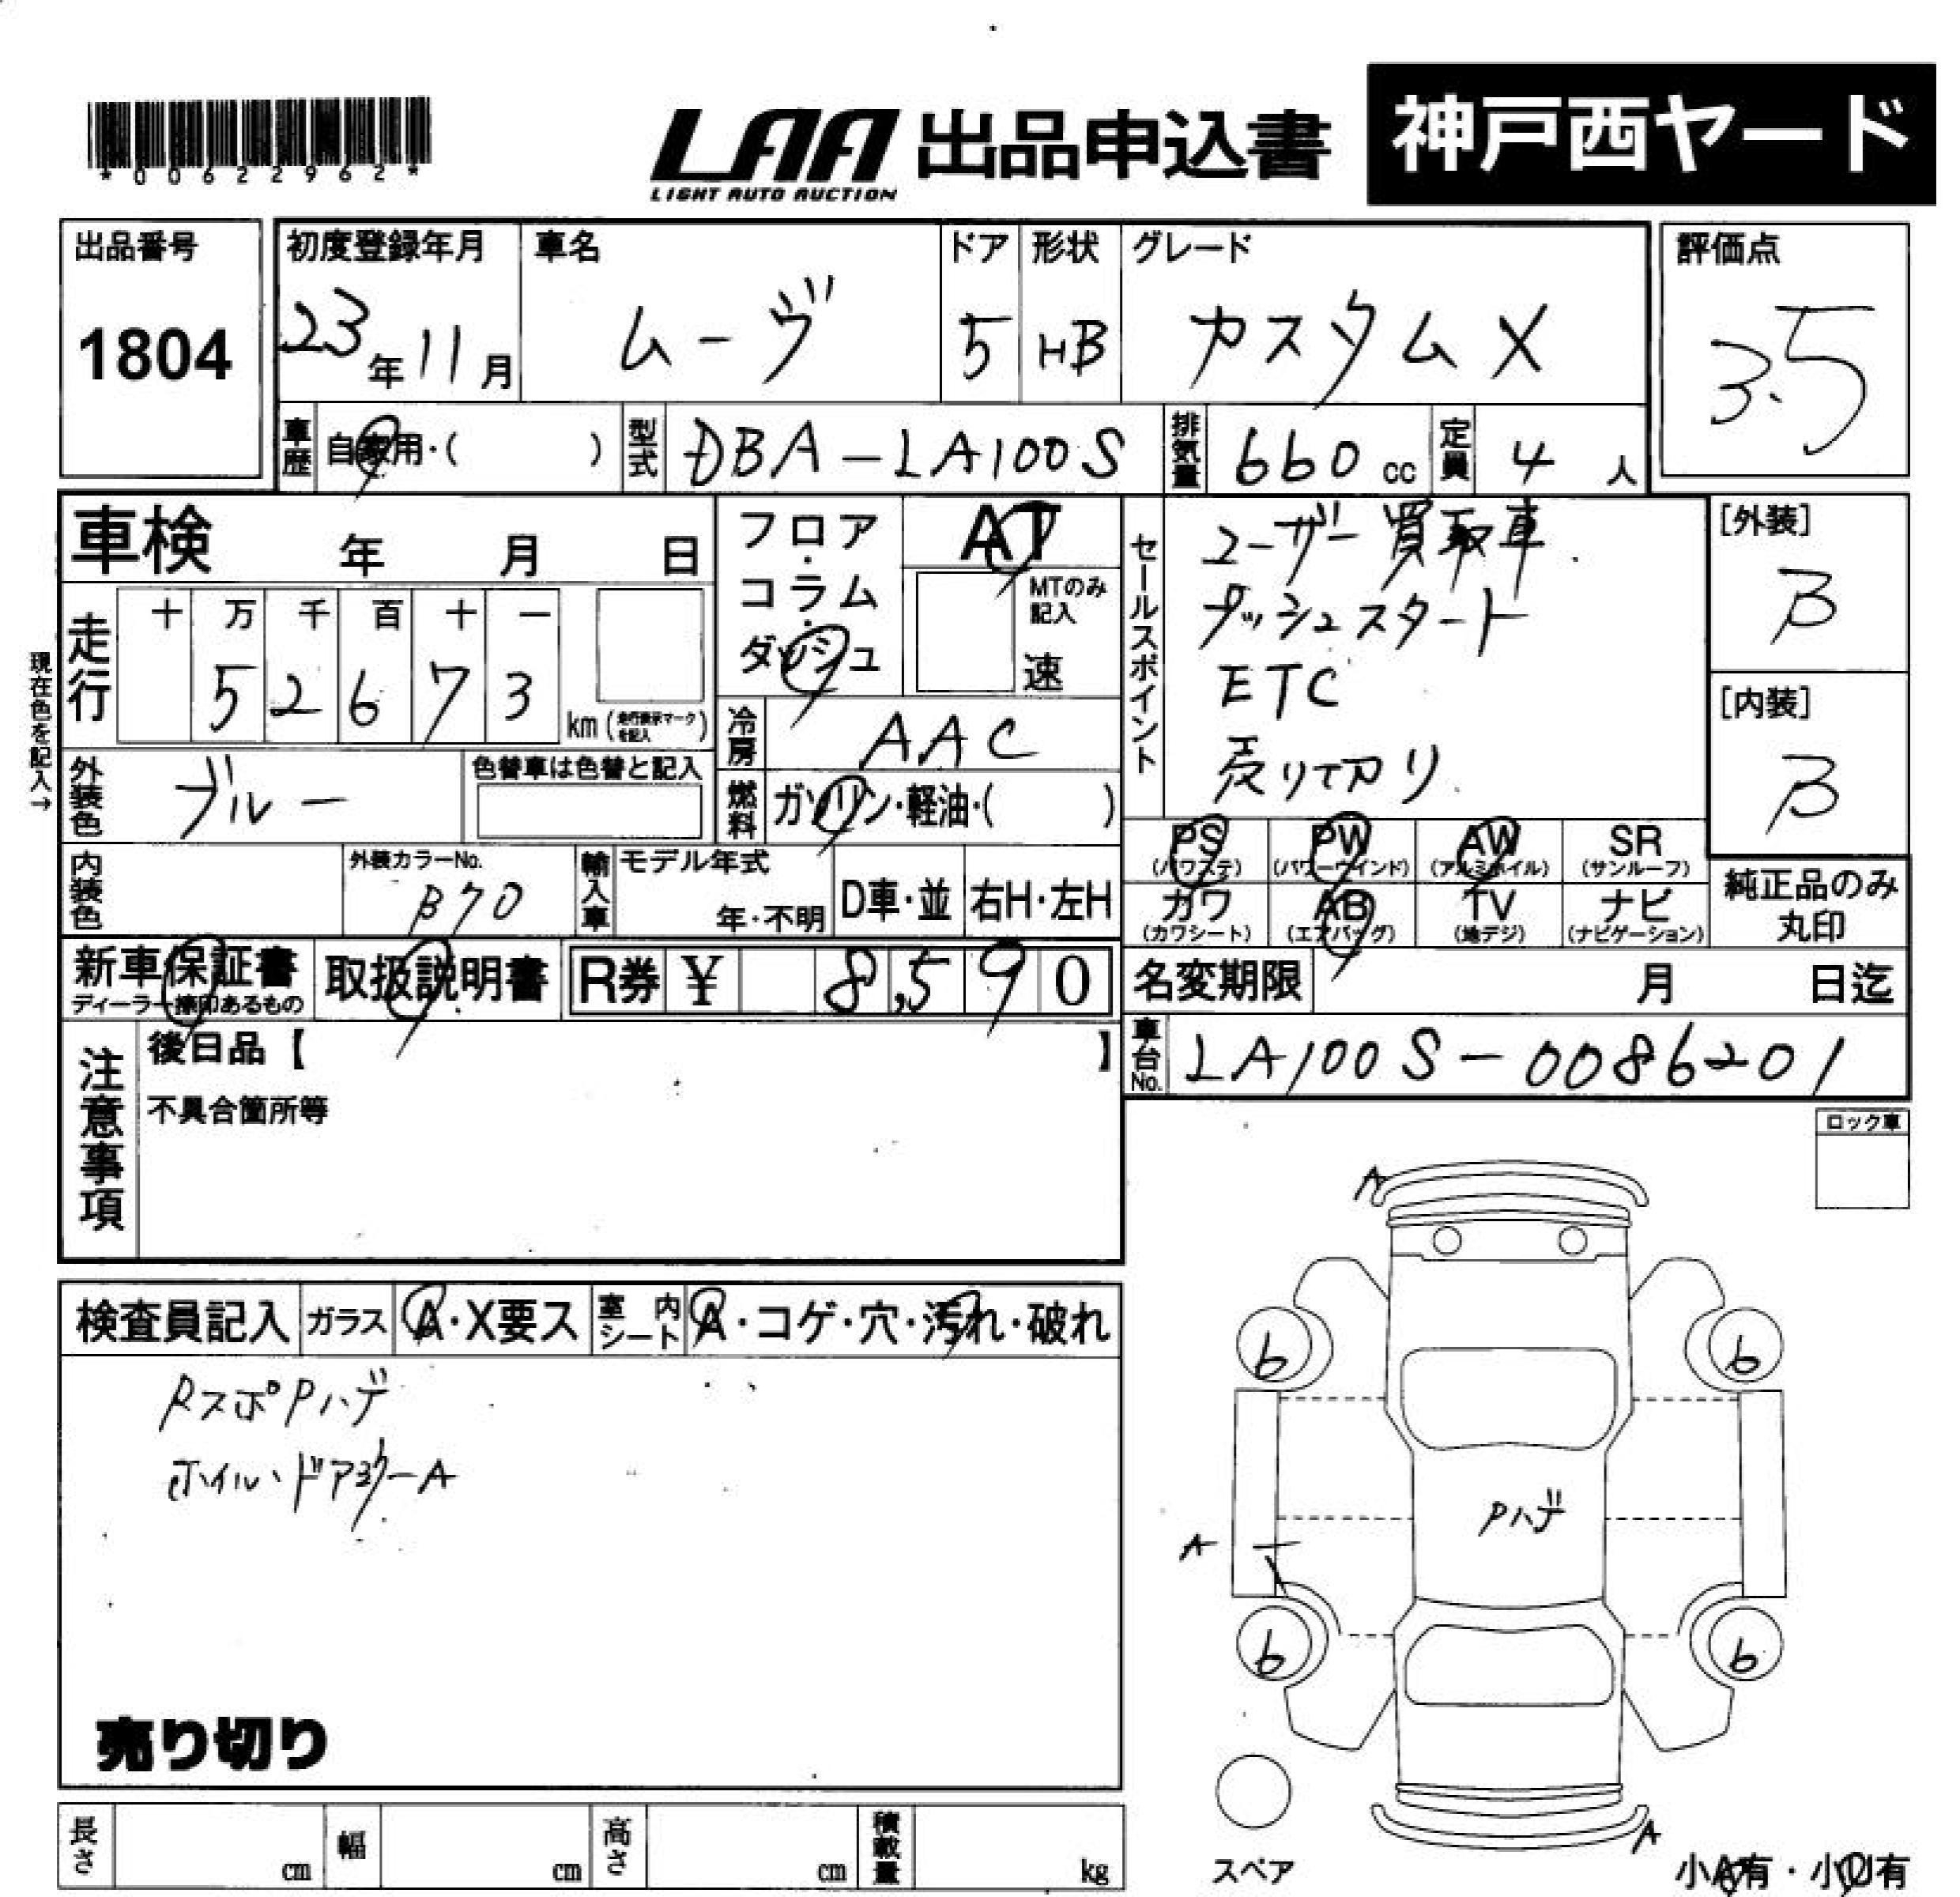 *00622962*
LAA 出品申込書 神戸西ヤード
LIGHT AUTO AUCTION
出品番号
1804
初度登録年月
23年11月
車名
ムーヴ
ドア
5
形状
HB
グレード
カスタムX
評価点
3.5
車歴 自家用・( )
型式 DBA-LA100S
排気量 660 cc
定員 4 人
車検 年 月 日
フロア・コラム・ダッシュ
AT
MTのみ記入
速
セールスポイント
ユーザー買取車
プッシュスタート
ETC
売り切り
[外装]
B
[内装]
B
現在色を記入→
走行
十 万 千 百 十 一
5 2 6 7 3
km (走行表示マークを記入)
冷房 AAC
外装色 ブルー
色替車は色替と記入
燃料 ガソリン・軽油・( )
PS (パワステ)
PW (パワーウインド)
AW (アルミホイル)
SR (サンルーフ)
カワ (カワシート)
AB (エアバッグ)
TV (地デジ)
ナビ (ナビゲーション)
純正品のみ
丸印
内装色
外装カラーNo.
B70
輸入車
モデル年式
年・不明
D車・並
右H・左H
新車保証書
ディーラー捺印あるもの
取扱説明書
R券 ¥ 8,590
名変期限 月 日迄
車台No. LA100S-0086201
注意事項
後日品【 】
不具合箇所等
ロック車
検査員記入
ガラス A・X要ス
室内シート A・コゲ・穴・汚れ・破れ
RスポPハゲ
ホイル、ドアミラーA
売り切り
A
6 6
Pハゲ
A
6 6
A
スペア
小A有・小U有
長さ cm
幅 cm
高さ cm
積載量 kg